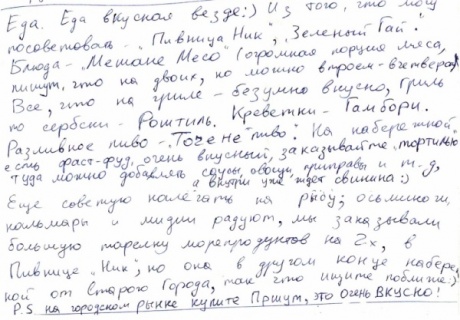 Еда. Еда вкусная везде:) Из того, что могу
посоветовать - "Пивница Ник", "Зеленый Гай".
Блюда - "Мешане Месо" (огромная порция мяса,
пишут, что на двоих, но можно втроем-вчетвером)
Все, что на гриле - безумно вкусно, гриль
по сербски - Роштиль. Креветки - Гамбори.
Разливное пиво - "Точене пиво". На набережной
есть фаст-фуд, очень вкусный, заказывайте тортилью
туда можно добавлять соусы, овощи, приправы и т.д,
а внутри уже ждет свинина:)
Еще советую налегать на рыбу, осьминоги,
кальмары и мидии радуют, мы заказывали
большую тарелку морепродуктов на 2х, в
Пивнице "Ник", но она в другом конце набереж
ной от Старого Города, так что ищите поближе:)
P.S на городском рынке купите Пршут, это очень ВКУСНО!